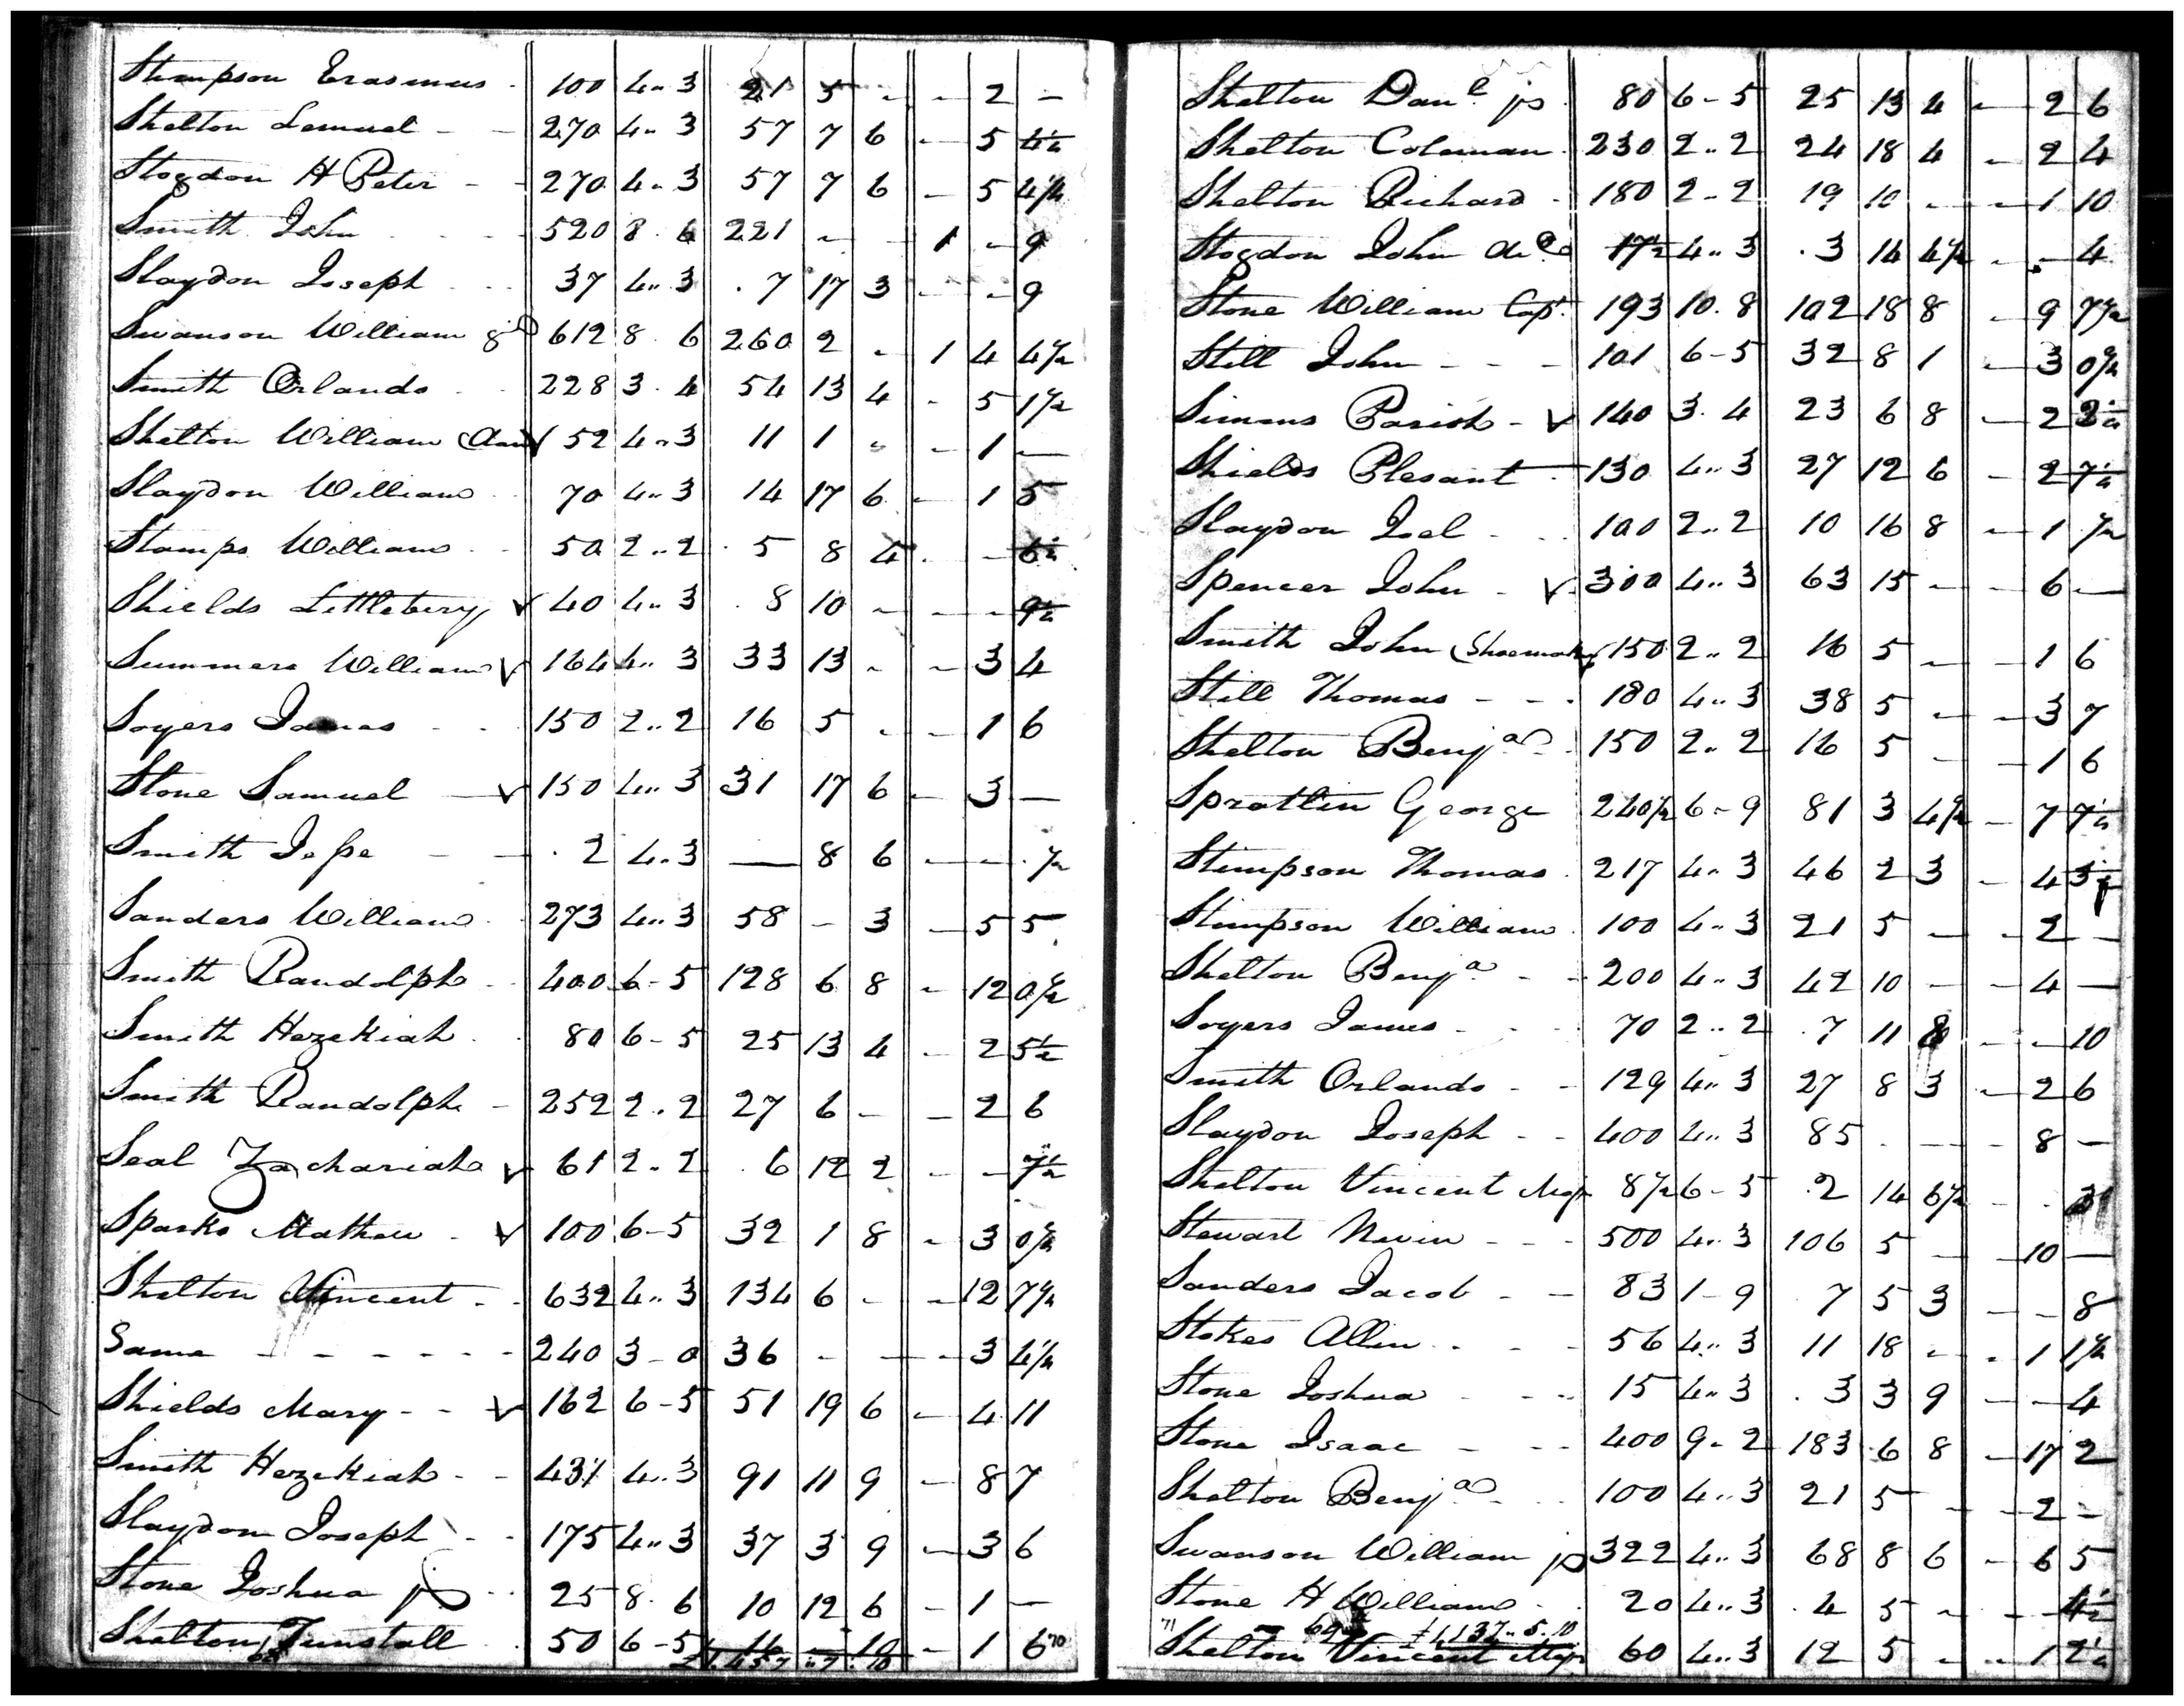 Stimpson Erasmus 100 4.. 3 21 5 - - 2 -
Shelton Lemuel - - 270 4.. 3 57 7 6 - 5 4½
Stogdon H Peter - - 270 4.. 3 57 7 6 - 5 4½
Smith John - - 520 8. 6 221 - 1 - 9
Slaydon Joseph - - 37 4.. 3 . 7 17 3 - - 9
Swanson William 612 8. 6 260 2 - 1 4 4½
Smith Orlando 228 3. 4 54 13 4 - 5 1½
Shelton William 52 4.. 3 11 1 - - 1 -
Slaydon William 70 4.. 3 14 17 6 - 1 5
Stamps William 50 2.. 2 . 5 8 4 - - 6½
Shields Littlebery v 40 4.. 3 . 8 10 - - - 9½
Summers William v 164 4.. 3 33 13 - - 3 4
Soyers James - - 150 2.. 2 16 5 - - 1 6
Stone Samuel - v 150 4.. 3 31 17 6 - 3 -
Smith Jesse - - . 2 4.. 3 - 8 6 - - . ½
Sanders William 273 4.. 3 58 - 3 - 5 5
Smith Randolph 400 6 - 5 128 6 8 - 12 0½
Smith Hezekiah 80 6 - 5 25 13 4 - 2 5½
Smith Randolph - 252 2.. 2 27 6 - - 2 6
Seal Zachariah v 61 2.. 2 . 6 12 2 - - 7½
Sparks Mathew v 100 6 - 5 32 1 8 - 3 0½
Shelton Vincent - - 632 4.. 3 134 6 - - 12 7½
Same - - - - - - 240 3 - 0 36 - - - 3 4½
Shields Mary - - v 162 6 - 5 51 19 6 - 4 11
Smith Hezekiah - - 431 4.. 3 91 11 9 - 8 7
Slaydon Joseph - - 175 4.. 3 37 3 9 - 3 6
Stone Joshua jr 25 8. 6 10 12 6 - 1 -
Shelton Tunstall 50 6 - 5 16 - 10 - 1 6
Shelton Danl jr 80 6 - 5 25 13 4 - 2 6
Shelton Coleman 230 2.. 2 24 18 4 - 2 4
Shelton Richard 180 2 - 2 19 10 - - 1 10
Stogdon John & Co 17½ 4.. 3 . 3 14 4½ - - 4
Stone William Capt. 193 10. 8 102 18 8 - 9 7½
Still John - - - 101 6 - 5 32 8 1 - 3 0½
Simms Parish - v 140 3. 4 23 6 8 - 2 2½
Shields Plesant 130 4.. 3 27 12 6 - 2 7½
Slaydon Joel 100 2.. 2 10 16 8 - 1 ½
Spencer John - v 300 4.. 3 63 15 - - 6 -
Smith John (Shoemaker 150 2.. 2 16 5 - - 1 6
Still Thomas - - - 180 4.. 3 38 5 - - 3 7
Shelton Benja 150 2.. 2 16 5 - - 1 6
Spratlin George 240½ 6 - 9 81 3 4½ - 7 7½
Stimpson Thomas 217 4.. 3 46 2 3 - 4 3½
Stimpson William 100 4.. 3 21 5 - - 2 -
Shelton Benja - - 200 4.. 3 42 10 - - 4 -
Soyers James - - 70 2.. 2 . 7 11 8 - - 10
Smith Orlando - - 129 4.. 3 27 8 3 - 2 6
Slaydon Joseph - - 400 4.. 3 85 - - - 8 -
Shelton Vincent Majr 8½ 6 - 5 . 2 14 6½ - . 3
Stewart Nevin - - - 500 4.. 3 106 5 - - 10 -
Sanders Jacob - - 83 1 - 9 . 7 5 3 - - 8
Stokes Allin - - - 56 4.. 3 11 18 - - 1 1½
Stone Joshua - - - 15 4.. 3 . 3 3 9 - - 4
Stone Isaac - - - 400 9 - 2 183 6 8 - 17 2
Shelton Benja - - 100 4.. 3 21 5 - - 2 -
Swanson William jr 322 4.. 3 68 8 6 - 6 5
Stone H William 20 4.. 3 . 4 5 - - - 4½
£1,137..5.10
Shelton Vincent Majr 60 4.. 3 12 5 - - 1 2½